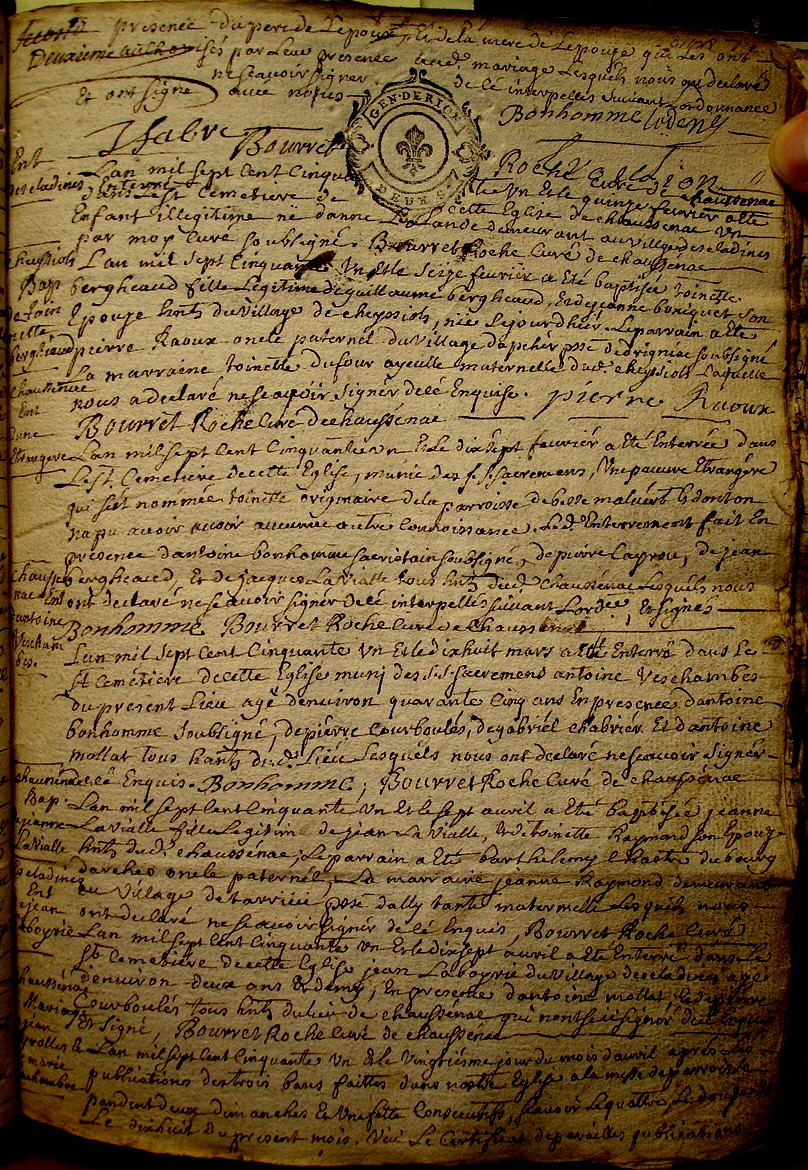 presence du pere de Lepoux Et de la mere de Lepouze qui Les ont
Deuxieme authorisés par Leur presence aud. mariage Lesquels nous ont declaré
ne scavoir signer de cé interpellés suivant Lordonnance
Et ont signé avec nous
Bonhomme
GEN. DE RIOM
DEUX S.
Bourret Roche curé de chaussenac
Ent
des cladines
Lan mil sept Cent Cinquante Un Et le quinze fevrier a Eté
Enterré dans Le st. Cemetiere de cette Eglise de chaussenac un
Enfant illegitime ne danne La Lande demeurant au village des cladines
par moy Curé soubsigné. Bourret Roche Curé de chaussenac
cheyssiols
Bap
de toinette
bergheaud
Lan mil sept Cinquante Un Et le seize fevrier a Eté baptisé toinette
bergheaud fille Legitime de guillaume bergheaud, Et de jeanne bouquet son
Epouze hnts du village de cheyssiols, née Lejourdhier. Le parrain a Eté
pierre Raoux oncle paternel du village dapcher psse de drignac soubsigné
La marraine toinette dufour ayeulle maternelle dud. cheyssiols Laquelle
nous a declaré ne scavoir signer de cé Enquise. pierre Raoux
Bourret Roche Curé de chaussenac
chaussenac
Ent
dune
Etrangere
Lan mil sept Cent Cinquante un Et le dix sept fevrier a Eté Enterrée dans
Le st. Cemetiere de cette Eglise, munie des s.s. sacremens, Une pauvre Etrangere
qui sest nommée toinette originaire de la parroisse de besse maluert dont on
na pu avoir aucune autre Connoissance. Led. Enterrement fait En
presence dantoine bonhomme sacristain soubsigné, de pierre Layrou, de jean
bergheaud, Et de jacques La Vialle tous hnts dud. chaussenac Lesquels nous
ont declaré ne scavoir signer de cé interpellés suivant Lordce.
Bonhomme Bourret Roche Curé de chaussenac
chaussenac
Ent
dantoine
Veschambes.
Lan mil sept Cent Cinquante Un Et le dixhuit mars a Eté Enterré dans Le
st. Cemetiere de cette Eglise muni des s.s. sacremens antoine Veschambes
du present Lieu agé denviron quarante Cinq ans En presence dantoine
bonhomme soubsigné, de pierre Courboulés, de gabriel chabrier Et dantoine
mollat tous hants dud. Lieu Lesquels nous ont declaré ne scavoir signer
de cé Enquis. Bonhomme, Bourret Roche Curé de chaussenac
chaussenac
Bap.
jeanne
La Vialle
Lan mil sept Cent Cinquante Un Et le sept avril a Eté baptisée jeanne
La Vialle fille Legitime de jean La Vialle, Et de toinette Raymond son Epouze
hnts dud. chaussenac; Le parrain a Eté barthelemy du bourg
darches oncle paternel; La marraine jeanne Raymond demeurant
au Village de tarrieu psse dally tante maternelle Lesquels nous
ont declaré ne scavoir signer de cé Enquis, Bourret Roche Curé
des cladines
Ent
de jean
Laboyrie
Lan mil sept Cent Cinquante Un Et le dixsept avril a Eté Enterré dans Le
st. Cemetiere de cette Eglise jean Laboyrie du Village des cladines agé
denviron deux ans Et demy, En presence dantoine mollat, Et de pierre
Courboulés tous hnts du lieu de chaussenac qui nont sceu signer de cé Enquis
Et signé, Bourret Roche Curé de chaussenac
chaussenac
Mariage
jean
& marie
Lan mil sept Cent Cinquante Un Et le Vingtiesme jour du mois davril apres Les
publications des trois bans faittes dans nostre Eglise a la messe de parroisse
pandent deux dimanches Et Une fette Consecutifs, scavoir Le quattre, Le douze Et
Le dixhuit du present mois. Veu Le Certificat de pareilles publications